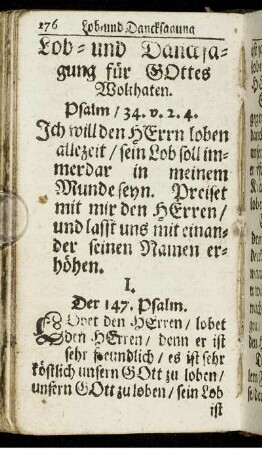 176 Lob-und Dancksagung
Lob- und Dancksa-
gung für GOttes
Wolthaten.
Psalm / 34. v. 2. 4.
Ich will den HErrn loben
allezeit / sein Lob soll im-
merdar in meinem
Munde seyn. Preiset
mit mir den HErren /
und lasst uns mit einan-
der seinen Namen er-
höhen.
I.
Der 147. Psalm.
LObet den HErren / lobet
den HErren / denn er ist
sehr freundlich / es ist sehr
köstlich unsern GOtt zu loben /
unsern GOtt zu loben / sein Lob
ist